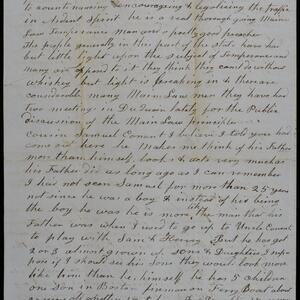 to countenancing & encouraging & legalizing the traffic
in Ardent Spirit he is a real thorough going Maine
Law Temperance man and a pretty good preacher
The people generally in this part of the state have had
but little light upon the subject of Temperance and
many are opposed to it they think they cant do without
whiskey but light is breaking in & there are
considerable many Maine Law men they have had
two meeting in Dudson lately for the Public
discussion of the Main Law principles
Cousin Samuel Conant I believe I told you has
come out here he makes me think of his Father
more than himself, looks & acts very much as
his Father did as long ago as I can remember
I had not seen Samuel for more than 25 years
not since he was a boy & instead of his being
the boy he was he is more the man that his
Father was when I used to go up to Uncle Conants
to play with Sam & Harry But he has got
2 or 3 almost grown up sons & Daughters I sup
pose if I should see his sons they would look more
like him than he himself he has 5 children
one Son in Boston one on Ferry Boat about